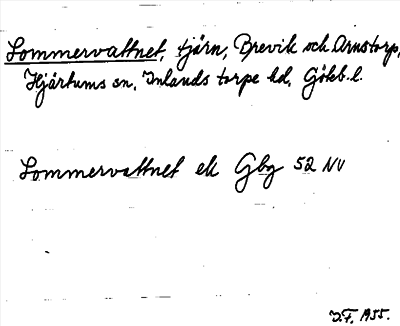 Lommervattnet, tjärn, Brevik och Arnstorp,
Hjärtums sn, Inlands torpe hd, Göteb. l.
Lommervattnet ek Gbg 52 NV
D.F. 1955.